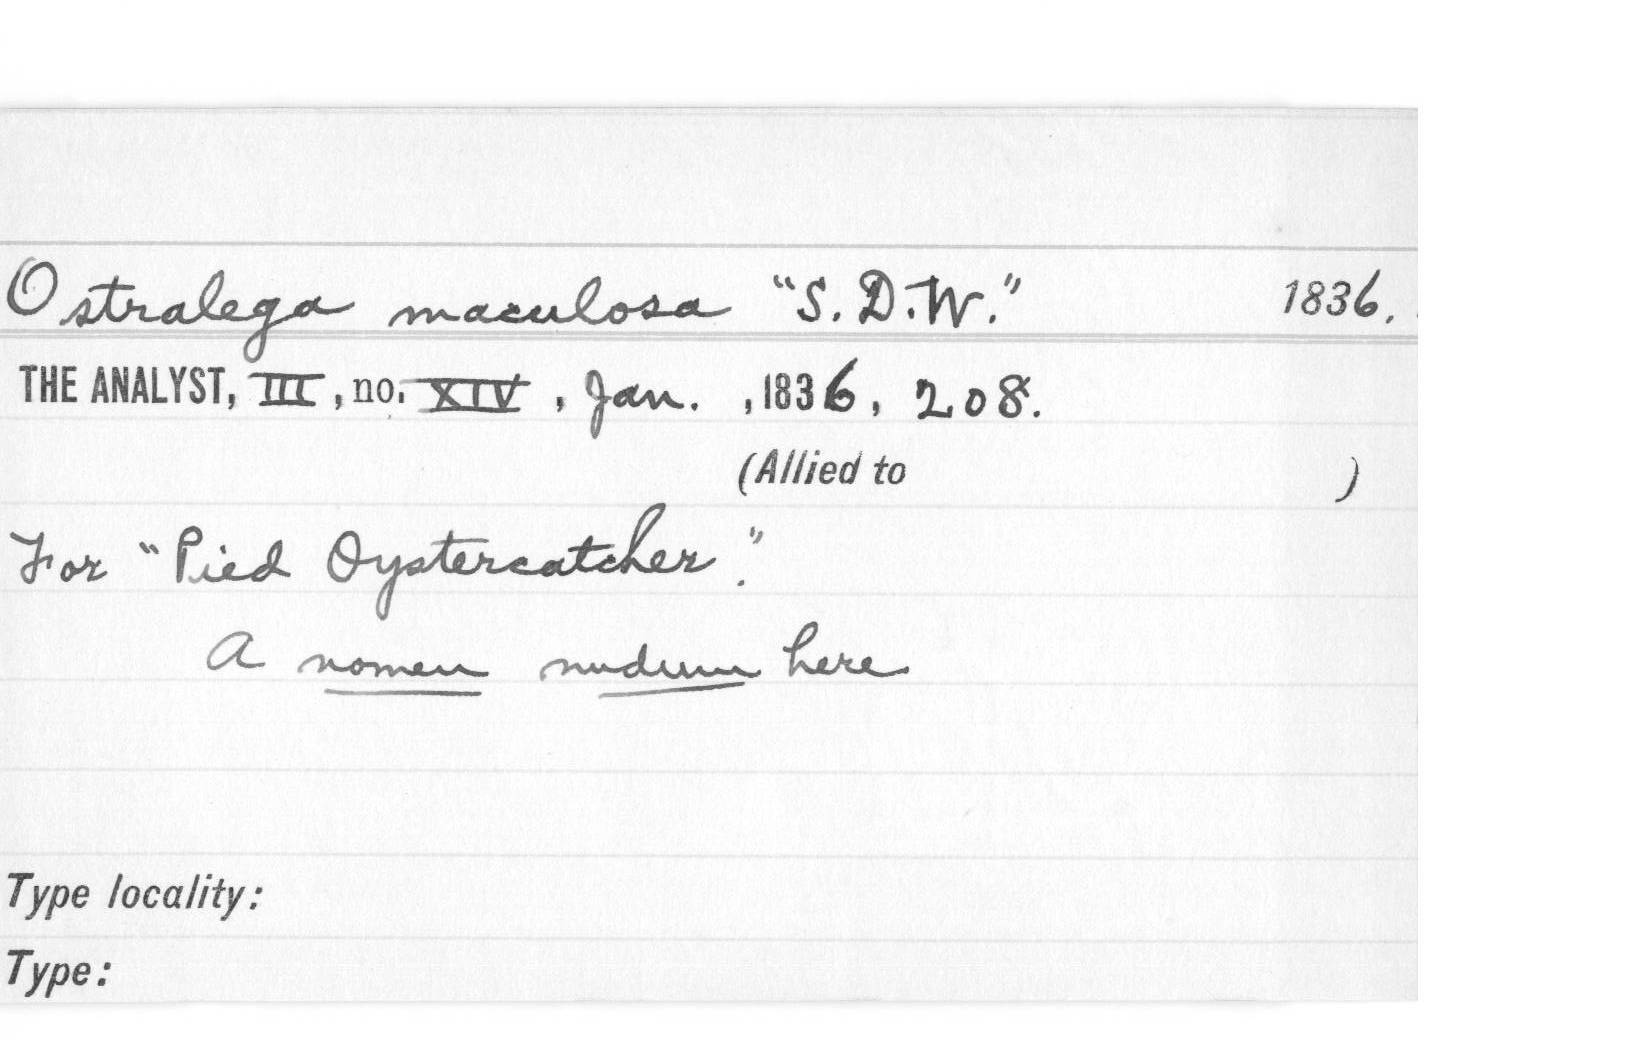 Ostralega maculosa "S.D.W." 1836.
THE ANALYST, III, no. XIV, Jan. , 1836, 208.
(Allied to )
For "Pied Oystercatcher."
A nomen nudum here
Type locality:
Type: